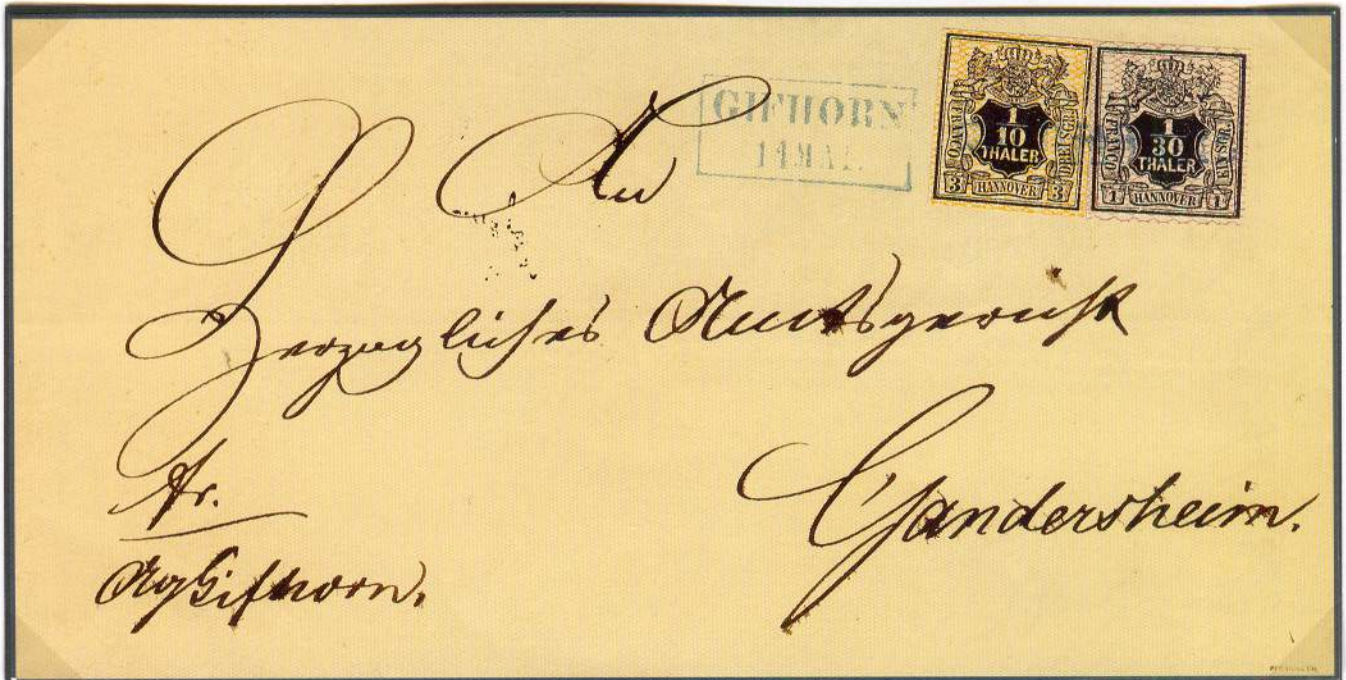 GIFHORN
14 MAI.
1
10
THALER
FRANCO
3 HANNOVER 3
1
30
THALER
FRANCO
1 HANNOVER 1
An
Herzogliches Amtsgericht
Gandersheim.
fr.
AgGifhorn.